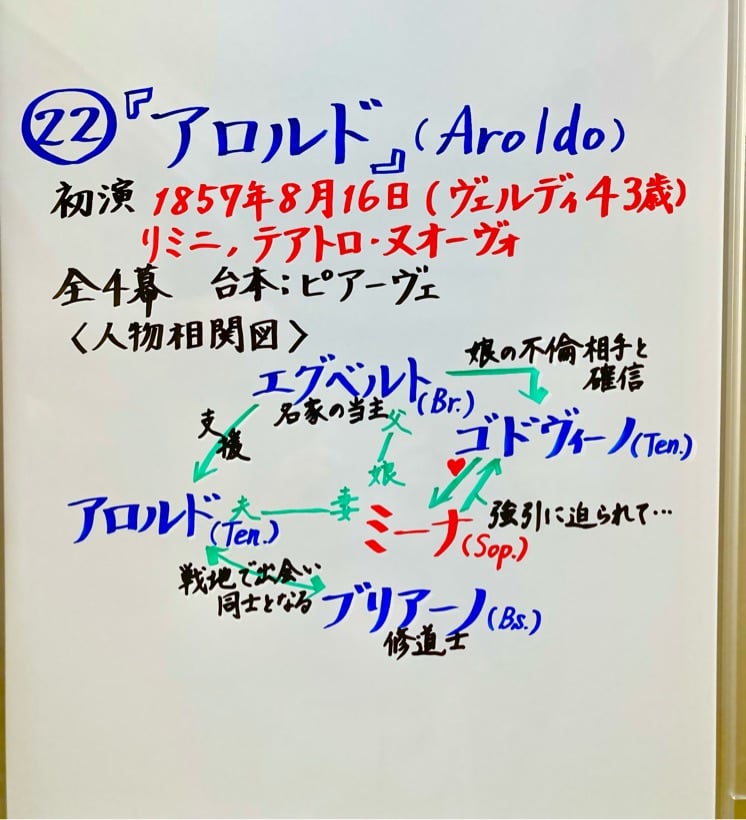 ㉒『アロルド』(Aroldo)
初演 1857年8月16日(ヴェルディ43歳)
リミニ,テアトロ・ヌオーヴォ
全4幕 台本;ピアーヴェ
〈人物相関図〉
娘の不倫相手と
確信
エグベルト(Br.)
名家の当主
父
娘
支援
ゴドヴィーノ(Ten.)
♥
強引に迫られて…
アロルド(Ten.)
夫 妻
ミーナ(Sop.)
戦地で出会い
同士となる
ブリアーノ(Bs.)
修道士